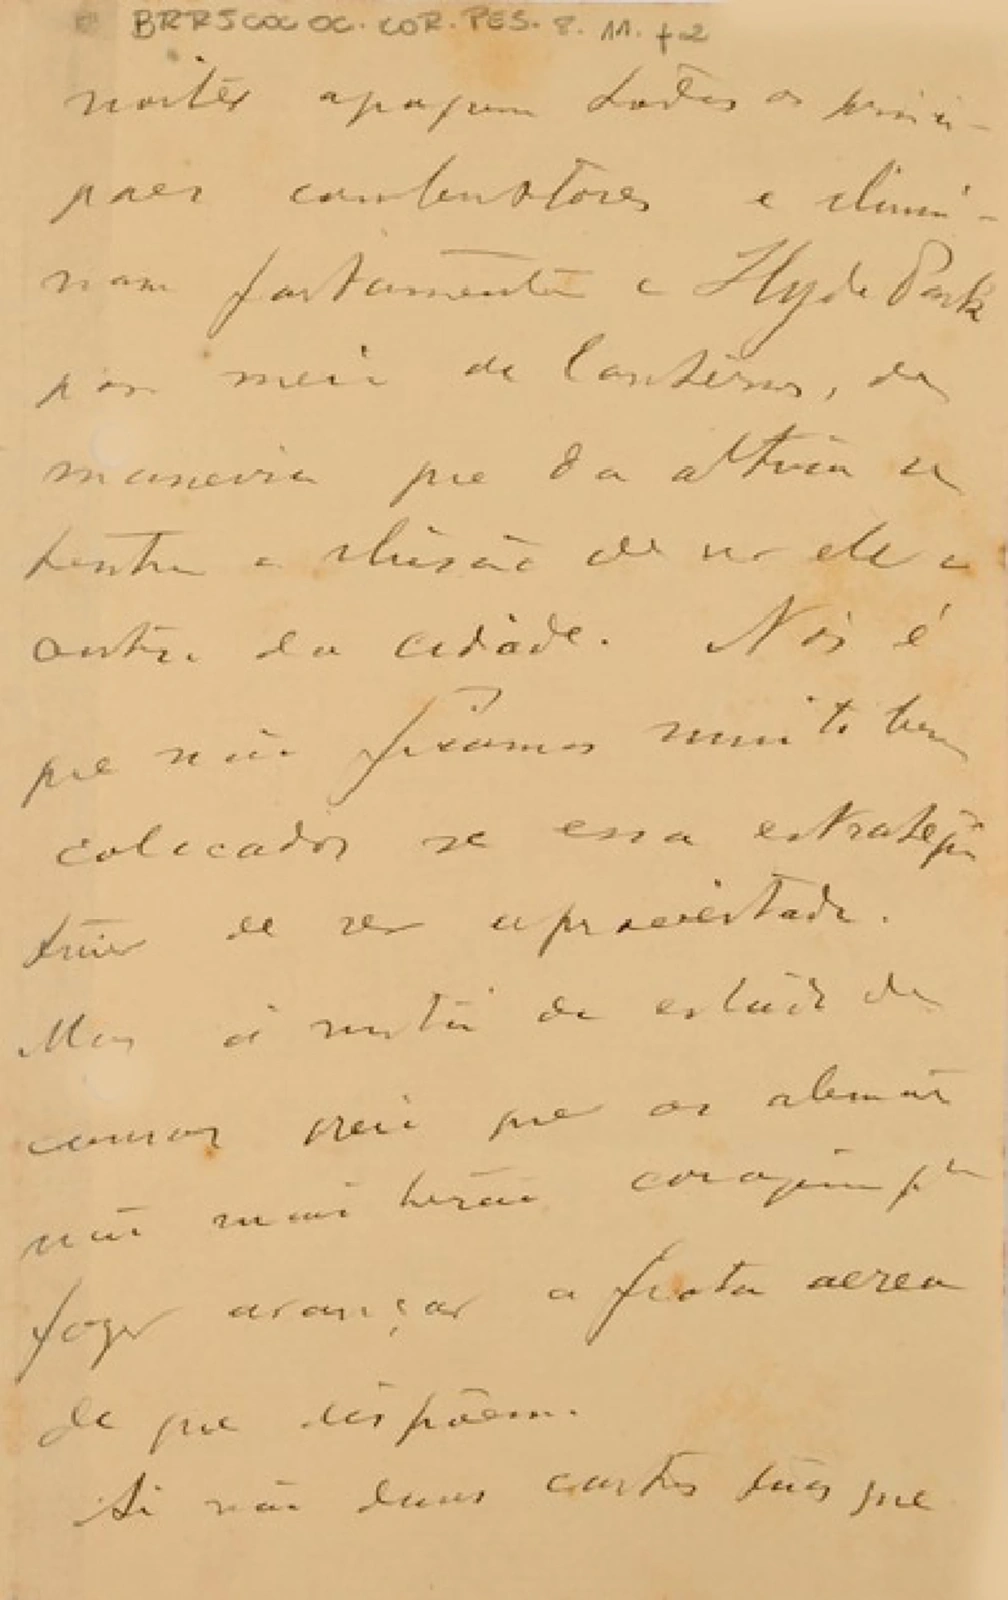 BRRJCOC OC. COR. PES. 8. 11. f-2
noites apagam todos os princi-
paes combustores e illumi-
nam fortemente o Hyde Park
por meio de lanternas, de
maneira que da altura se
tenha a illusão de ver ele o
centro da cidade. Nós é
que não ficamos muito bem
colocados se essa estrategia
tiver de ser aproveitada.
Mas á vista do estado das
cousas creio que os alemães
não mais terão coragem pa
fazer avançar a frota aerea
de que dispõem.
Li não duas cartas tuas que